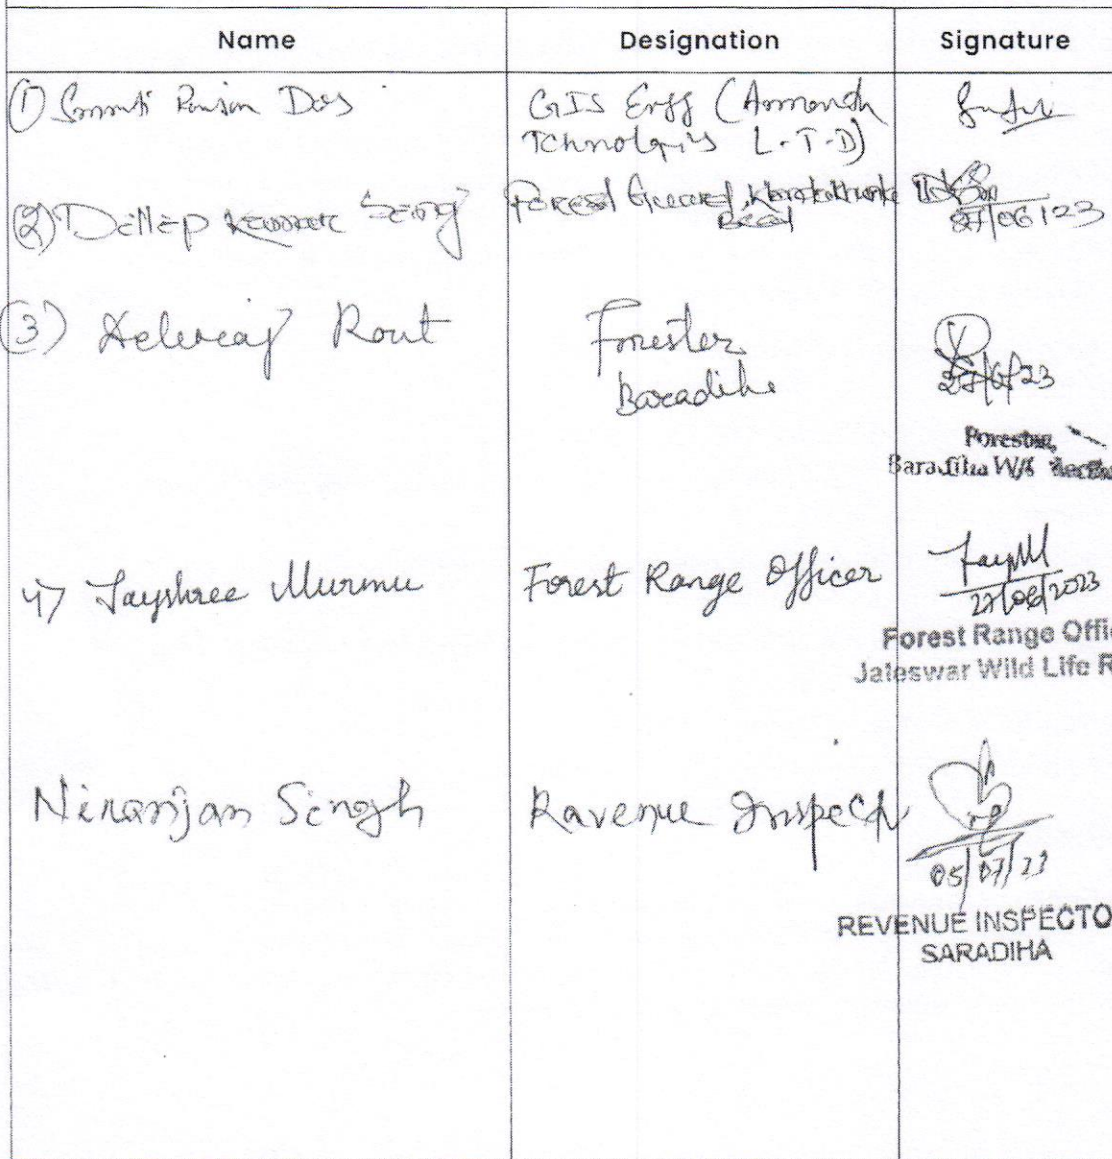 Name Designation Signature
① Smruti Ranjan Das GIS Engg (
L.T.D)
② Dillip Kumar Sing Forest Guard,
Beat
27/06/23
③ Rout Forester
Baradiha
27/6/23
Forester,
Baradiha W/L
4) Jayshree Murmu Forest Range Officer
27/06/2023
Forest Range Offic
Jaleswar Wild Life R
Niranjan Singh Ravenue Inspect
05/07/23
REVENUE INSPECTO
SARADIHA